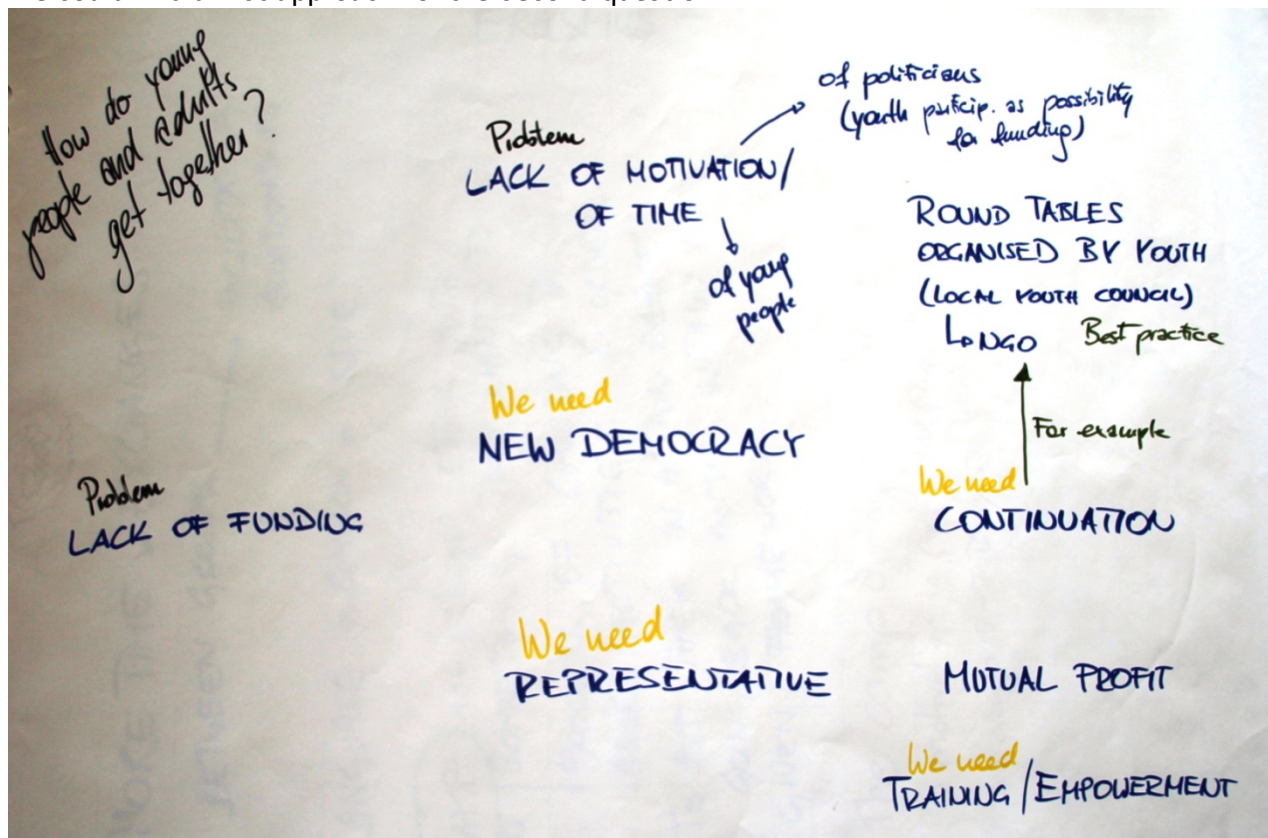 How do young
people and adults
get together?
Problem
LACK OF MOTIVATION/
OF TIME
of politicians
(youth particip. as possibility
for funding)
of young
people
ROUND TABLES
ORGANISED BY YOUTH
(LOCAL YOUTH COUNCIL)
NGO
Best practice
For example
We need
CONTINUATION
We need
NEW DEMOCRACY
Problem
LACK OF FUNDING
We need
REPRESENTATIVE
MUTUAL PROFIT
We need
TRAINING/EMPOWERMENT